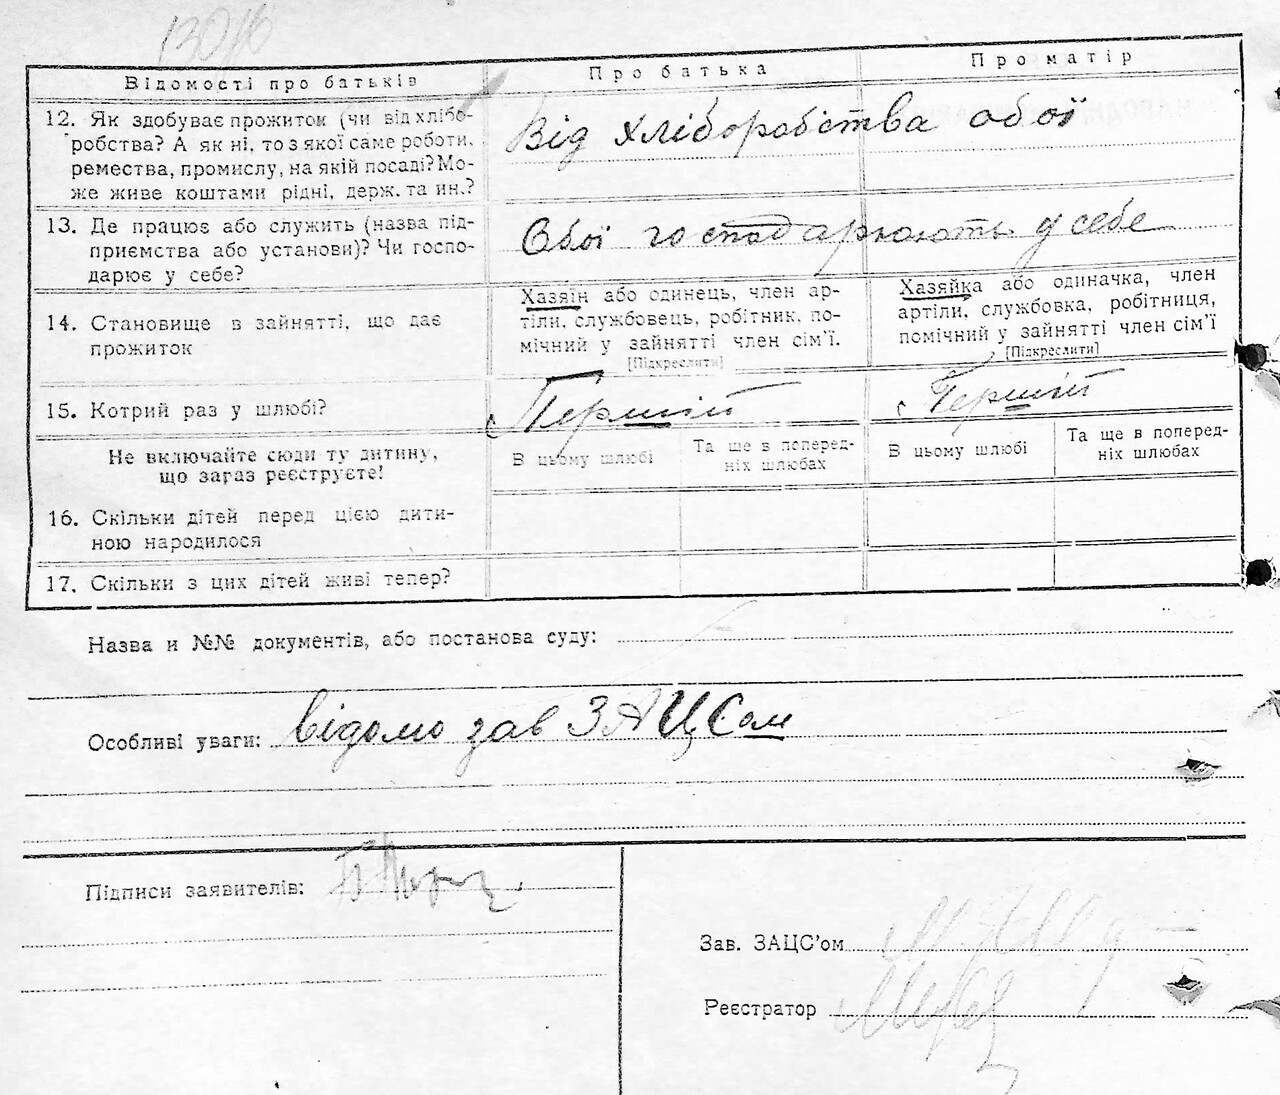 Відомості про батьків
Про батька
Про матір
12. Як здобуває прожиток (чи від хлібо-
робства? А як ні, то з якої саме роботи,
ремества, промислу, на якій посаді? Мо-
же живе коштами рідні, держ. та ин.?
Від хліборобства обої
13. Де працює або служить (назва під-
приємства або установи)? Чи госпо-
дарює у себе?
Обої господарюють у себе
14. Становище в зайнятті, що дає
прожиток
Хазяїн або одинець, член ар-
тіли, службовець, робітник, по-
мічний у зайнятті член сім'ї.
[Підкреслити]
Хазяйка або одиначка, член
артіли, службовка, робітниця,
помічний у зайнятті член сім'ї
[Підкреслити]
15. Котрий раз у шлюбі?
Перший
Перший
Не включайте сюди ту дитину,
що зараз реєструєте!
В цьому шлюбі
Та ще в попered-
ніх шлюбах
В цьому шлюбі
Та ще в поперед-
ніх шлюбах
16. Скільки дітей перед цією дити-
ною народилося
17. Скільки з цих дітей живі тепер?
Назва и №№ документів, або постанова суду:
Особливі уваги: відомо зав ЗАЦСом
Підписи заявителів:
Зав. ЗАЦС'ом
Реєстратор